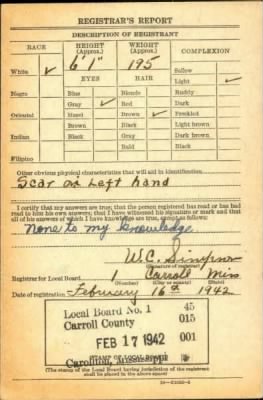 REGISTRAR'S REPORT
DESCRIPTION OF REGISTRANT
RACE HEIGHT (Approx.) WEIGHT (Approx.) COMPLEXION
6'1" 195
White ✓ EYES HAIR Sallow
Light ✓
Negro Blue Blonde Ruddy
Gray ✓ Red Dark
Oriental Hazel Brown ✓ Freckled
Brown Black Light brown
Indian Black Gray Dark brown
Bald Black
Filipino
Other obvious physical characteristics that will aid in identification
Scar on Left hand
I certify that my answers are true; that the person registered has read or has had
read to him his own answers; that I have witnessed his signature or mark and that
all of his answers of which I have knowledge are true, except as follows:
None to my knowledge.
W.C. Simpson
(Signature of registrar)
Registrar for Local Board 1 Carroll Miss
(Number) (City or county) (State)
Date of registration February 16th 1942
Local Board No. 1 45
Carroll County 015
FEB 17 1942 001
Carrollton, Mississippi
(STAMP OF LOCAL BOARD)
(The stamp of the Local Board having jurisdiction of the registrant
shall be placed in the above space)